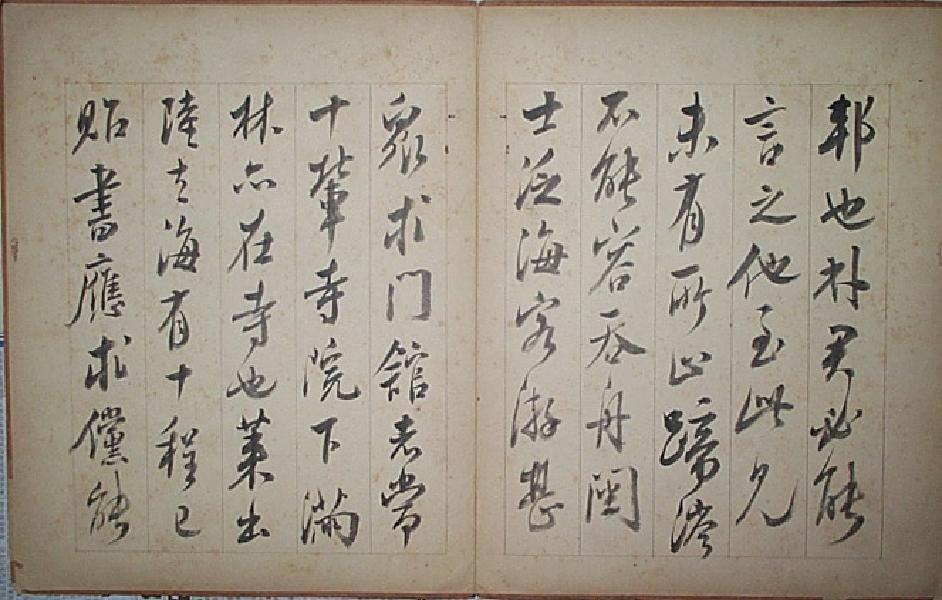 邦也朴君必能
言之他至此見
未有所止蹄涔
不能容吞舟閩
士泛海客游甚
衆求門館者常
十輩寺院下滿
林亦在寺也萊出
陸去海有十程已
貽書應求儻能